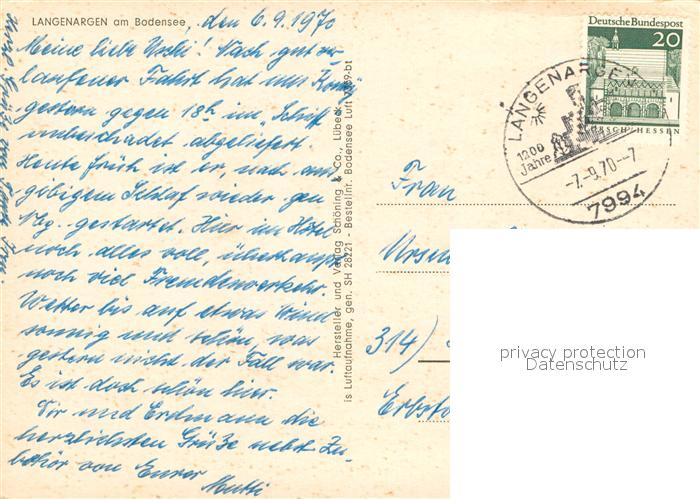 LANGENARGEN am Bodensee, den 6.9.1970
Meine liebe Uschi! Nach gut ver-
laufener Fahrt hat uns
gestern gegen 18h im "Schiff"
unbeschadet abgeliefert.
Heute früh ist er, nach aus-
giebigem Schlaf wieder gen
gestartet. Hier im Hotel
noch alles voll, überhaupt
noch viel Fremdenverkehr.
Wetter bis auf etwas Wind
sonnig und schön, was
gestern nicht der Fall war.
Es ist doch schön hier.
Dir und Erdmann die
herzlichsten Grüße nebst Zu-
behör von Eurer
Mutti
Hersteller und Verlag Schöning & Co., Lübeck
is Luftaufnahme, gen. SH 28221 - Bestellnr. Bodensee Luft 1359-bt
Deutsche Bundespost
20
LORSCH/HESSEN
LANGENARGEN
1200
Jahre
-7.-9.70.-7
7994
Frau
314)
privacy protection
Datenschutz